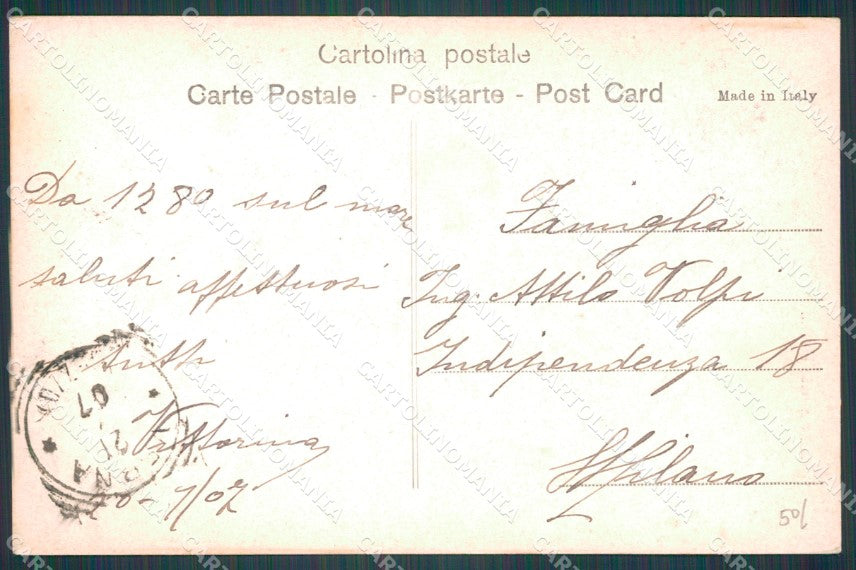 Cartolina postale
Carte Postale - Postkarte - Post Card
Made in Italy
Da 1280 sul mare
saluti affettuosi
tutti
Vittorina
20-7/07
Famiglia
Ing. Attilo Volpi
Indipendenza 18
Milano
50/
07
CARTOLINOMANIA